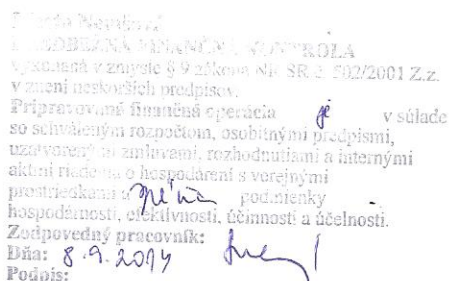 FINANČNÁ KONTROLA
vykonaná v zmysle § 9 zákona NR SR č. 502/2001 Z.z.
v znení neskorších predpisov.
Pripravovaná finančná operácia je v súlade
so schváleným rozpočtom, osobitnými predpismi,
uzatvorenými zmluvami, rozhodnutiami a internými
aktmi riadenia o hospodárení s verejnými
prostriedkami a spĺňa podmienky
hospodárnosti, efektívnosti, účinnosti a účelnosti.
Zodpovedný pracovník:
Dňa: 8.9.2014
Podpis: